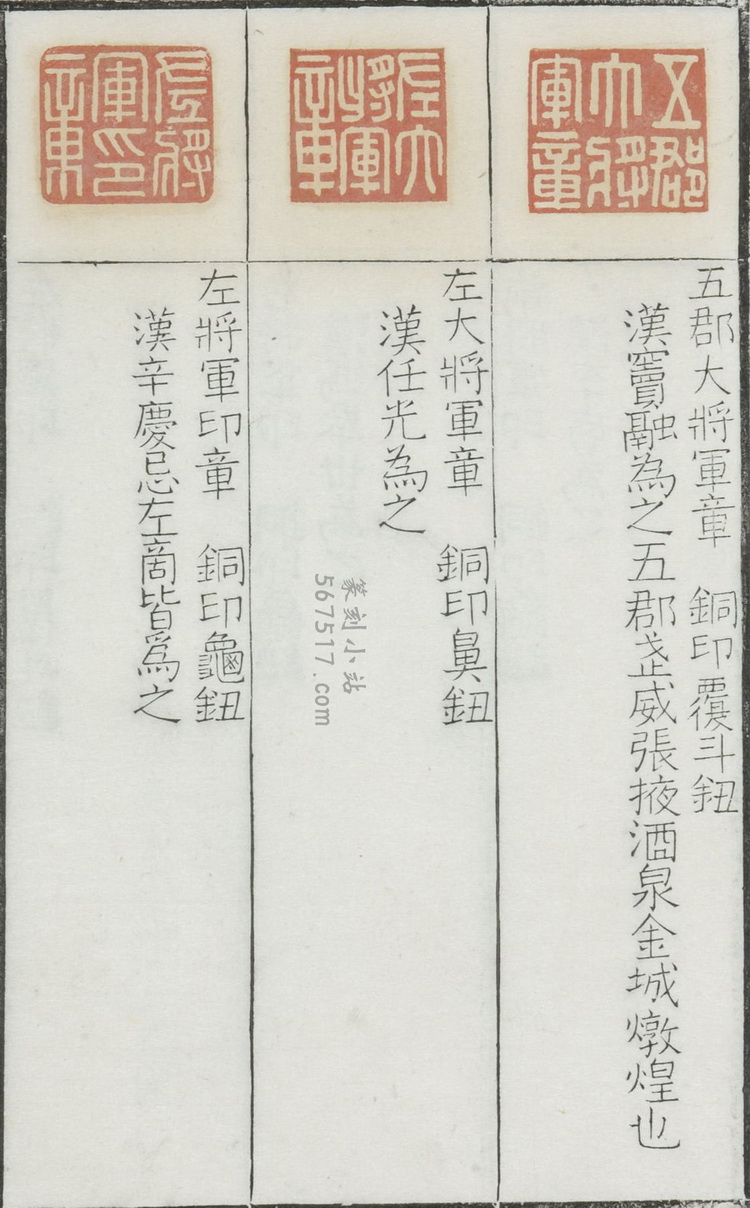 五郡
大將
軍章
五郡大將軍章 銅印覆斗鈕
漢竇融為之五郡武威張掖酒泉金城燉煌也
左大
將軍
章
左大將軍章 銅印鼻鈕
漢任光為之
左將
軍印
章
左將軍印章 銅印龜鈕
漢辛慶忌左啇皆爲之
篆刻小站
567517.com